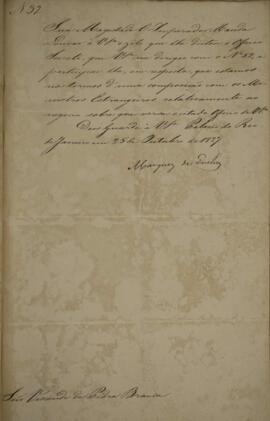 Nº 52
Sua Magestade O Imperador, Manda
a V.ª o que lhe Officio
Secreto, que V.ª me dirigio com o Nº 52, e
participar-lhe, em resposta, que estamos
nos termos d'uma com os
Estrangeiros relativamente ao
negocio sobre que versa o citado Officio de V.ª
Deos Guarde a V.ª Palacio do Rio
de Janeiro em 25 de Outubro de 1827
Marquez de Queluz
Snr. Visconde da Pedra Branca